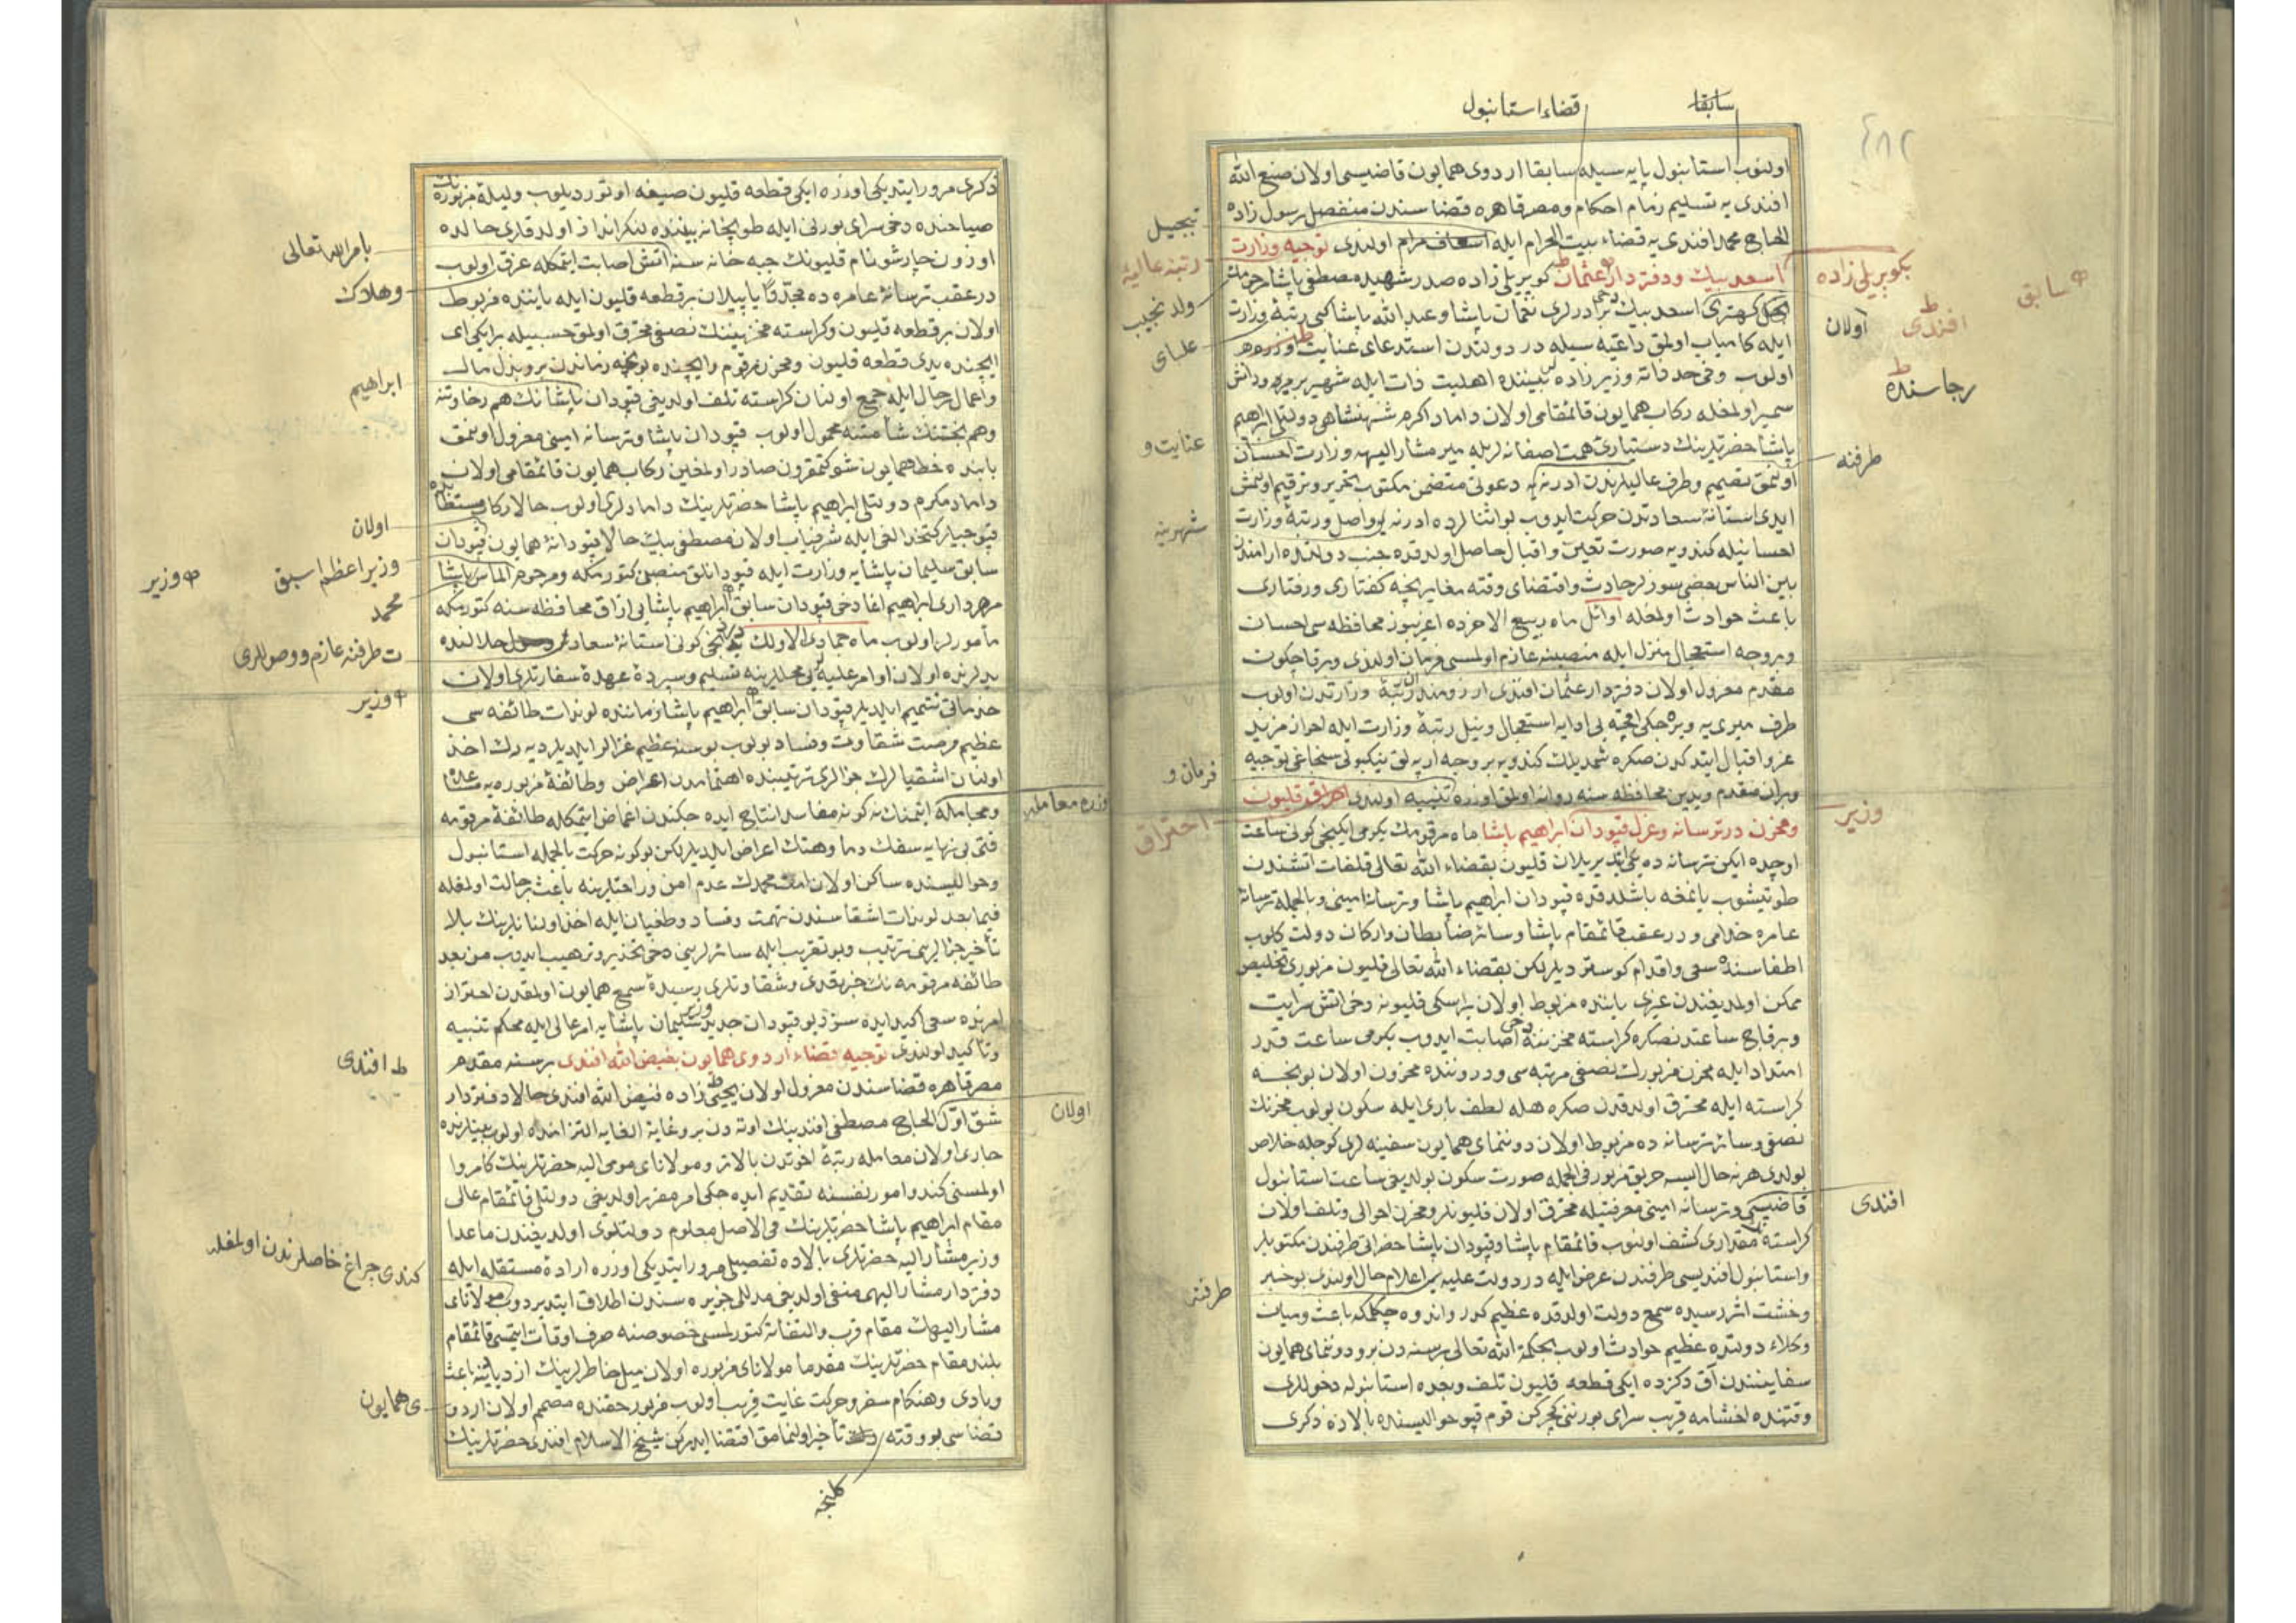 سابقا
قضاء استانبول
٤٨٢
اولنوب استانبول پایه سیله سابقا اردوی همایون قاضیسی اولان صنع الله
افندی یه تسلیم زمام احکام ومصر قاهره قضاسندن منفصل رسول زاده
الحاج محمد افندی یه قضاء بیت الحرام ایله اسعاف مرام اولندی توجیه وزارت
اسعد بیك ودفتردار عثمان کوپریلی زاده صدر شهید مصطفی پاشا مرحومك
اسعد بیك برادرلری نعمان پاشا وعبد الله پاشا کبی رتبۀ وزارت
ایله کامیاب اولمق داعیه سیله در دولتدن استدعای عنایت
اولوب وفی حد ذاته وزیر زاده اهلیت ذات ایله شهیر
سمیر اولمغله رکاب همایون قائمقامی اولان داماد اکرم شهنشاهی دولتلی ابراهیم
پاشا حضرتلرینك دستیاری همت اصفانه لریله میر مشار الیهه وزارت احسان
اولنمق تصمیم وطرف عالیلرندن ادرنه یه دعوتی متضمن مکتوب تحریر وترقیم اولنمش
ایدی استانۀ سعادتدن حرکت ایدوب بو اثنالرده ادرنه یه واصل ورتبۀ وزارت
احسانیله کندویه صورت تعین واقبال حاصل اولدقده جنب دولتده ارامندن
بین الناس بعضی سوزلر حادث واقتضای وقته مغایر بچه کفتاری ورفتاری
باعث حوادث اولمغله اوائل ماه ربیع الاخرده اغریبوز محافظه سی احسان
وبر وجه استعجال منزل ایله منصبنه عازم اولمسی فرمان اولندی وبرقاچ کون
مقدم معزول اولان دفتردار عثمان افندی ارزومند رتبۀ وزارتدن اولوب
طرف میری یه ویره جکی اقچه یی ادایه استعجال ونیل رتبۀ وزارت ایله احراز مزید
عز واقبال ایتدکدن صکره شمدیلك کندویه بر وجه ارپه لق نیکبولی سنجاغی توجیه
وبران مقدم ویدین محافظه سنه روانه اولمق اوزره تنبیه اولندی احراق قلیون
ومخزن در ترسانه وعزل قپودان ابراهیم پاشا ماه مرقومك یکرمی ایکنجی کونی ساعت
اوچده ایکن ترسانه ده یکی قلیون بقضاء الله تعالی قلفات اتشندن
طوتیشوب یانمغه باشلدقده قپودان ابراهیم پاشا وترسانه امینی وبالجمله ترسانۀ
عامره خدامی ودر عقب قائمقام پاشا وسائر ضابطان وارکان دولت کلوب
اطفاسنده سعی واقدام کوستردیلر لکن بقضاء الله تعالی قلیون مزبوری تخلیص
ممکن اولمدیغندن غیری یاننده مربوط اولان بر اسکی قلیونه دخی اتش سرایت
وبرقاچ ساعتدنصکره کراسته مخزننه دخی اصابت ایدوب یکرمی ساعت قدر
امتداد ایله مخزن مزبورك نصفی مرتبه سی ودروننده مخزون اولان بونجه
کراسته ایله محترق اولدقدن صکره هله لطف باری ایله سکون بولوب مخزنك
نصفی وسائر ترسانه ده مربوط اولان دوننمای همایون سفینه لری کوجله خلاص
بولدی هر نه حال ایسه حریق مزبور فی الجمله صورت سکون بولدیغی ساعت استانبول
قاضیسی وترسانه امینی معرفتیله محترق اولان قلیونلر ومخزن احوالی وتلف اولان
کراسته مقداری کشف اولنوب قائمقام پاشا وقپودان پاشا حضراتی طرفندن مکتوبلر
واستانبول افندیسی طرفندن عرض ایله در دولت علیه یه اعلام حال اولندی بو خبر
وحشت اثر رسیدۀ سمع دولت اولدقده عظیم کدر واندوه چکلمکه باعث ومیان
وکلاء دولتده عظیم حوادث اولوب بحکمة الله تعالی بر سنه دن برو دوننمای همایون
سفاینندن آق دکزده ایکی قطعه قلیون تلف وبعده استانبوله دخوللری
وقتنده اخشامه قریب سرای بورننی کچرکن قوم قپو حوالیسنده بالاده ذکری
تبجیل
رتبۀ عالیۀ
ولد نجیب
علیای
عنایت و
شهرینه
فرمان و
احتراق
طرفنه
بکوپریلی زاده
سابق
افندی
اولان
رجاسنده
طرفنه
وزیر
افندی
ذکری مرور ایتدیکی اوزره ایکی قطعه قلیون صیغه اوتوردیلوب ولیلۀ مزبوره نك
صباحنده دخی سرای بورنی ایله طوپخانه بیننده لنکر انداز اولدقلری حالده
اوزون چارشو نام قلیونك جبه خانه سنه اتش اصابت ایتمکله غرق اولوب
در عقب ترسانۀ عامره ده مجددا یاپیلان بر قطعه قلیون ایله یاننده مربوط
اولان بر قطعه قلیون وکراسته مخزنینك نصفی محترق اولمق حسبیله بر ایکی ای
ایچنده یدی قطعه قلیون ومخزن مرقوم وایچنده بونجه زماندن برو بذل مال
واعمال رجال ایله جمع اولنان کراسته تلف اولدیغی قپودان پاشانك هم رخاوتنه
وهم بختنك شأمتنه محمول اولوب قپودان پاشا وترسانه امینی معزول اولنمق
بابنده خط همایون شوکتمقرون صادر اولمغین رکاب همایون قائمقامی اولان
داماد مکرم دولتلی ابراهیم پاشا حضرتلرینك دامادلری اولوب حالا رکاب مستطابده
قپوجیلر کتخدالغی ایله شرفیاب اولان مصطفی بیك حالا قپودانۀ همایون قپودان
سابق سلیمان پاشایه وزارت ایله قپودانلق منصبی کتورمکه ومرحوم الماس پاشا
مهرداری ابراهیم اغا دخی قپودان سابق ابراهیم پاشایی ازاق محافظه سنه کتورمکه
مأمورلر اولوب ماه جمادی الاولك کونی استانۀ سعادت حلالنده
یدلرنده اولان اوامر علیه یی محللرینه تسلیم وسپردۀ عهدۀ سفارتلری اولان
خدماتی تتمیم ایلدیلر قپودان سابق ابراهیم پاشا زماننده لوندات طائفه سی
عظیم فرصت شقاوت وفساد بولوب بو سنه عظیم غزالر ایلدیلر دیه رك اخذ
اولنان اشقیالرك جزالری ترتیبنده اهتمامدن اعراض وطائفۀ مزبوره یه
ومجامله ایتمنك نه کونه مفاسد انتاج ایده جکندن اغماض ایتمکله طائفۀ مرقومه
فتی بی نهایه سفك دما وهتك اعراض ایلدیلر لکن بو کونه حرکت بالجمله استانبول
وحوالیسنده ساکن اولان امت محمدك عدم امن وراحتلرینه باعث بر حالت اولمغله
فیما بعد لوندات اشقیاسندن تهمت وفساد وطغیان ایله اخذ اولنانلرینك بلا
تأخیر جزالرینی ترتیب وبو تقریب ایله سائرلرینی دخی تحذیر وترهیب ایدوب من بعد
طائفه مرقومه نك جبر تعدی وشقاوتلری رسیدۀ سمع همایون اولمقدن احتراز
امرنده سعی اکید ایده سز دیو قپودان جدید وزیر سلیمان پاشایه امر عالی ایله محکم تنبیه
وتأکید اولندی توجیه قضاء اردوی همایون بفیض الله افندی بر سنه مقدم
مصر قاهره قضاسندن معزول اولان یحیی زاده فیض الله افندی حالا دفتردار
شق اول الحاج مصطفی افندینك اوته دن برو غایة الغایه التزامنده اولوب بینلرنده
جاری اولان معامله رتبۀ اخوتدن بالاتر ومولانای مومی الیه حضرتلرینك کامروا
اولمسنی کندو امور نفسنه تقدیم ایده جکی امر مقرر اولدیغی دولتلی قائمقام عالی
مقام ابراهیم پاشا حضرتلرینك فی الاصل معلوم دولتلری اولدیغندن ماعدا
وزیر مشار الیه حضرتلری بالاده تفصیلی مرور ایتدیکی اوزره ارادۀ مستقله ایله
دفتردار مشار الیهی منفی اولدیغی مدللی جزیره سندن اطلاق ایتدیردوب مولانای
مشار الیهك مقام قرب والتفاته کتورلمسی خصوصنه صرف اوقات ایتمسی قائمقام
بلند مقام حضرتلرینك مقدما مولانای مزبوره اولان میل خاطرلرینك ازدیادینه باعث
وبادی وهنکام سفر وحرکت غایت قریب اولوب مزبور حقنده مصمم اولان اردو
قضاسی بو وقته تأخیر اولنمامق اقتضا ایدرکن شیخ الاسلام افندی حضرتلرینك
بامر الله تعالی
وهلاك
ابراهیم
اولان
وزیر اعظم اسبق
وزیر
محمد
ت طرفنه عازم ووصوللری
وزیر
وزره معامله
افندی
اولان
کندی چراغ خاصلرندن اولمغله
ی همایون
کلنجه